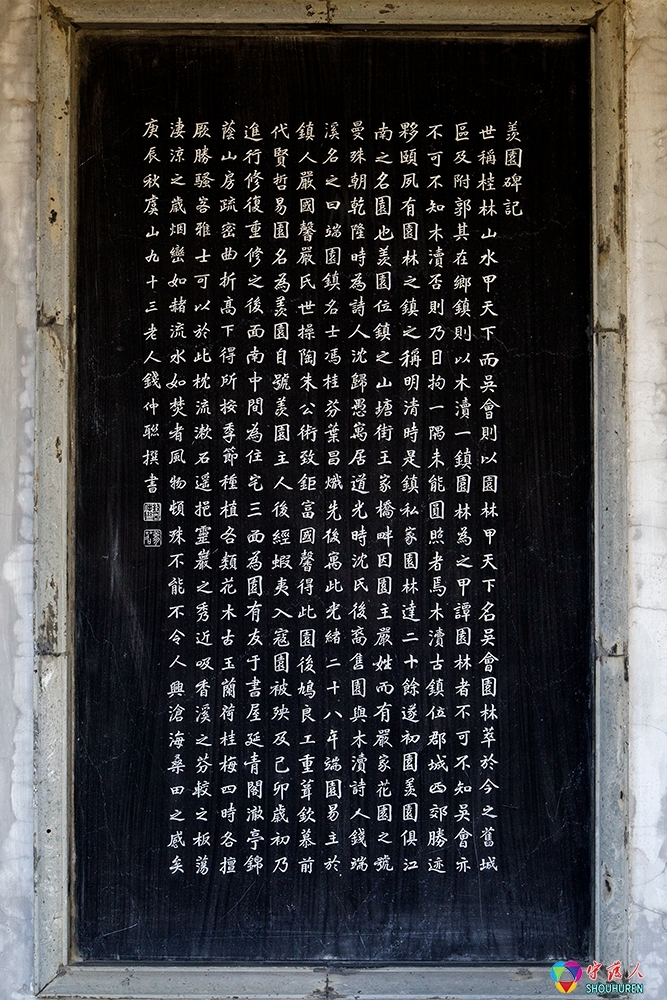 羡園碑記
世稱桂林山水甲天下而吳會則以園林甲天下名吳會園林萃於今之舊城
區及附郭其在鄉鎮則以木瀆一鎮園林為之甲譚園林者不可不知吳會亦
不可不知木瀆否則乃目拘一隅未能圓照者焉木瀆古鎮位郡城西郊勝迹
夥頤夙有園林之鎮之稱明清時是鎮私家園林達二十餘遂初園羡園俱江
南之名園也羡園位鎮之山塘街王家橋畔因園主嚴姓而有嚴家花園之號
曼殊朝乾隆時為詩人沈歸愚寓居道光時沈氏後裔售園與木瀆詩人錢端
溪名之曰端園鎮名士馮桂芬葉昌熾先後寓此光緒二十八年端園易主於
鎮人嚴國馨嚴氏世操陶朱公術致鉅富國馨得此園後鳩良工重葺欽慕前
代賢哲易園名為羡園自號羡園主人後經蝦夷入寇園被殃及己卯歲初乃
進行修復重修之後面南中間為住宅三面為園有友于書屋延青閣澈亭錦
蔭山房疏密曲折高下得所按季節種植各類花木古玉蘭荷桂梅四時各擅
厥勝騷客雅士可以於此枕流漱石遥挹靈巖之秀近吸香溪之芬較之板蕩
淒涼之歲烟巒如赭流水如焚者風物頓殊不能不令人興滄海桑田之感矣
庚辰秋虞山九十三老人錢仲聯撰書
守护人
SHOUHUREN